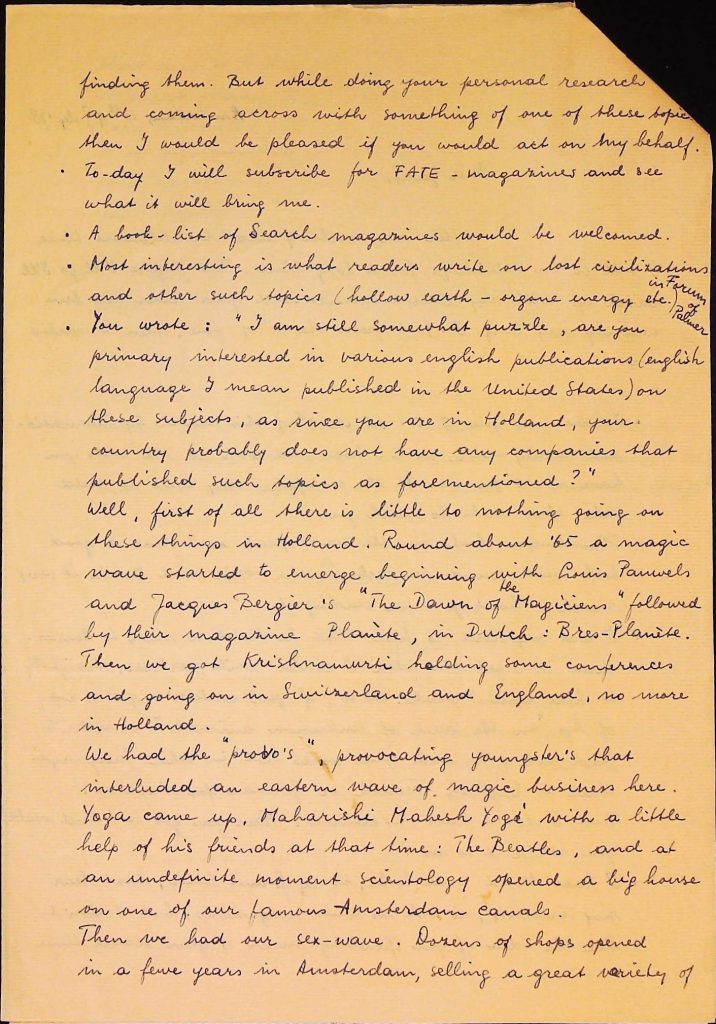 finding them. But while doing your personal research
and coming across with something of one of these topic
then I would be pleased if you would act on my behalf.
• To-day I will subscribe for FATE - magazines and see
what it will bring me.
• A book-list of Search magazines would be welcomed.
• Most interesting is what readers write on lost civilizations
and other such topics (hollow earth - orgone energy etc.) in Forum of Palmer
• You wrote : "I am still somewhat puzzle, are you
primary interested in various english publications (english
language I mean published in the United States) on
these subjects, as since you are in Holland, your
country probably does not have any companies that
published such topics as forementioned ?"
Well, first of all there is little to nothing going on
these things in Holland. Round about '65 a magic
wave started to emerge beginning with Louis Pauwels
and Jacques Bergier's "The Dawn of the Magiciens" followed
by their magazine Planète, in Dutch : Bres-Planète.
Then we got Krishnamurti holding some conferences
and going on in Switzerland and England, no more
in Holland.
We had the "provo's", provocating youngster's that
interluded an eastern wave of magic business here.
Yoga came up, Maharishi Mahesh Yogi with a little
help of his friends at that time : The Beatles, and at
an undefinite moment scientology opened a big house
on one of our famous Amsterdam canals.
Then we had our sex-wave. Dozens of shops opened
in a few years in Amsterdam, selling a great variety of